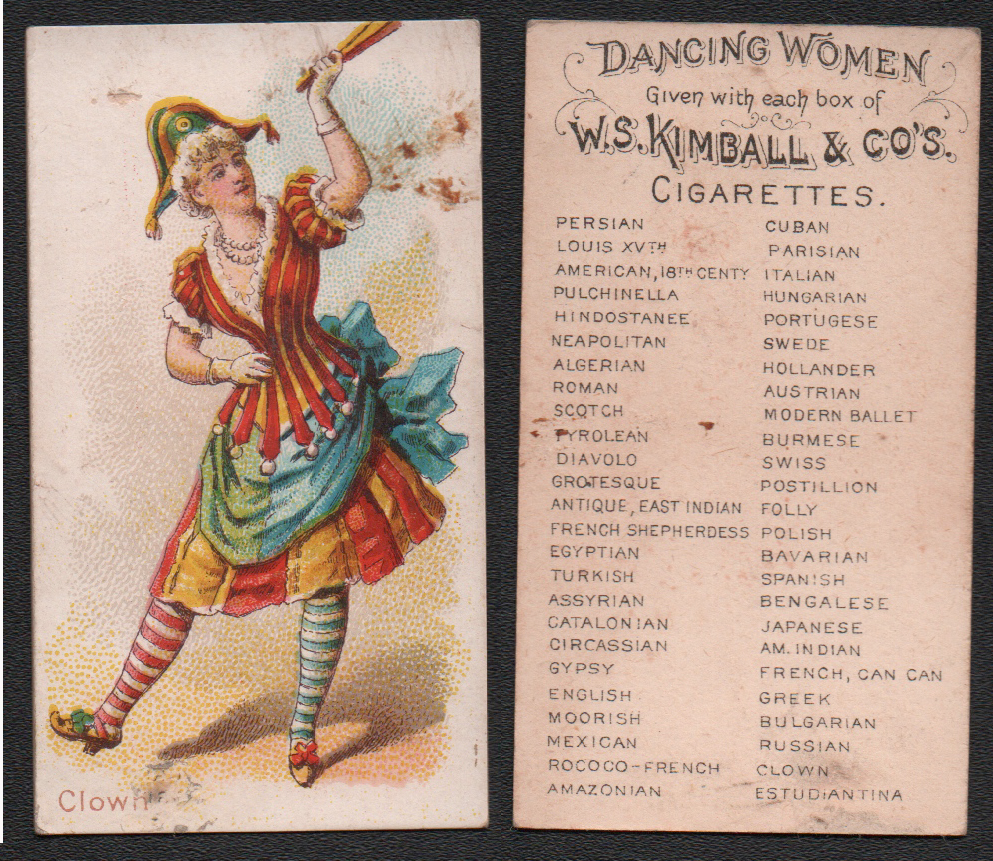 Clown
DANCING WOMEN
Given with each box of
W.S. KIMBALL & CO'S.
CIGARETTES.
PERSIAN
LOUIS XVTH
AMERICAN, 18TH CENTY
PULCHINELLA
HINDOSTANEE
NEAPOLITAN
ALGERIAN
ROMAN
SCOTCH
TYROLEAN
DIAVOLO
GROTESQUE
ANTIQUE, EAST INDIAN
FRENCH SHEPHERDESS
EGYPTIAN
TURKISH
ASSYRIAN
CATALONIAN
CIRCASSIAN
GYPSY
ENGLISH
MOORISH
MEXICAN
ROCOCO-FRENCH
AMAZONIAN
CUBAN
PARISIAN
ITALIAN
HUNGARIAN
PORTUGESE
SWEDE
HOLLANDER
AUSTRIAN
MODERN BALLET
BURMESE
SWISS
POSTILLION
FOLLY
POLISH
BAVARIAN
SPANISH
BENGALESE
JAPANESE
AM. INDIAN
FRENCH, CAN CAN
GREEK
BULGARIAN
RUSSIAN
CLOWN
ESTUDIANTINA